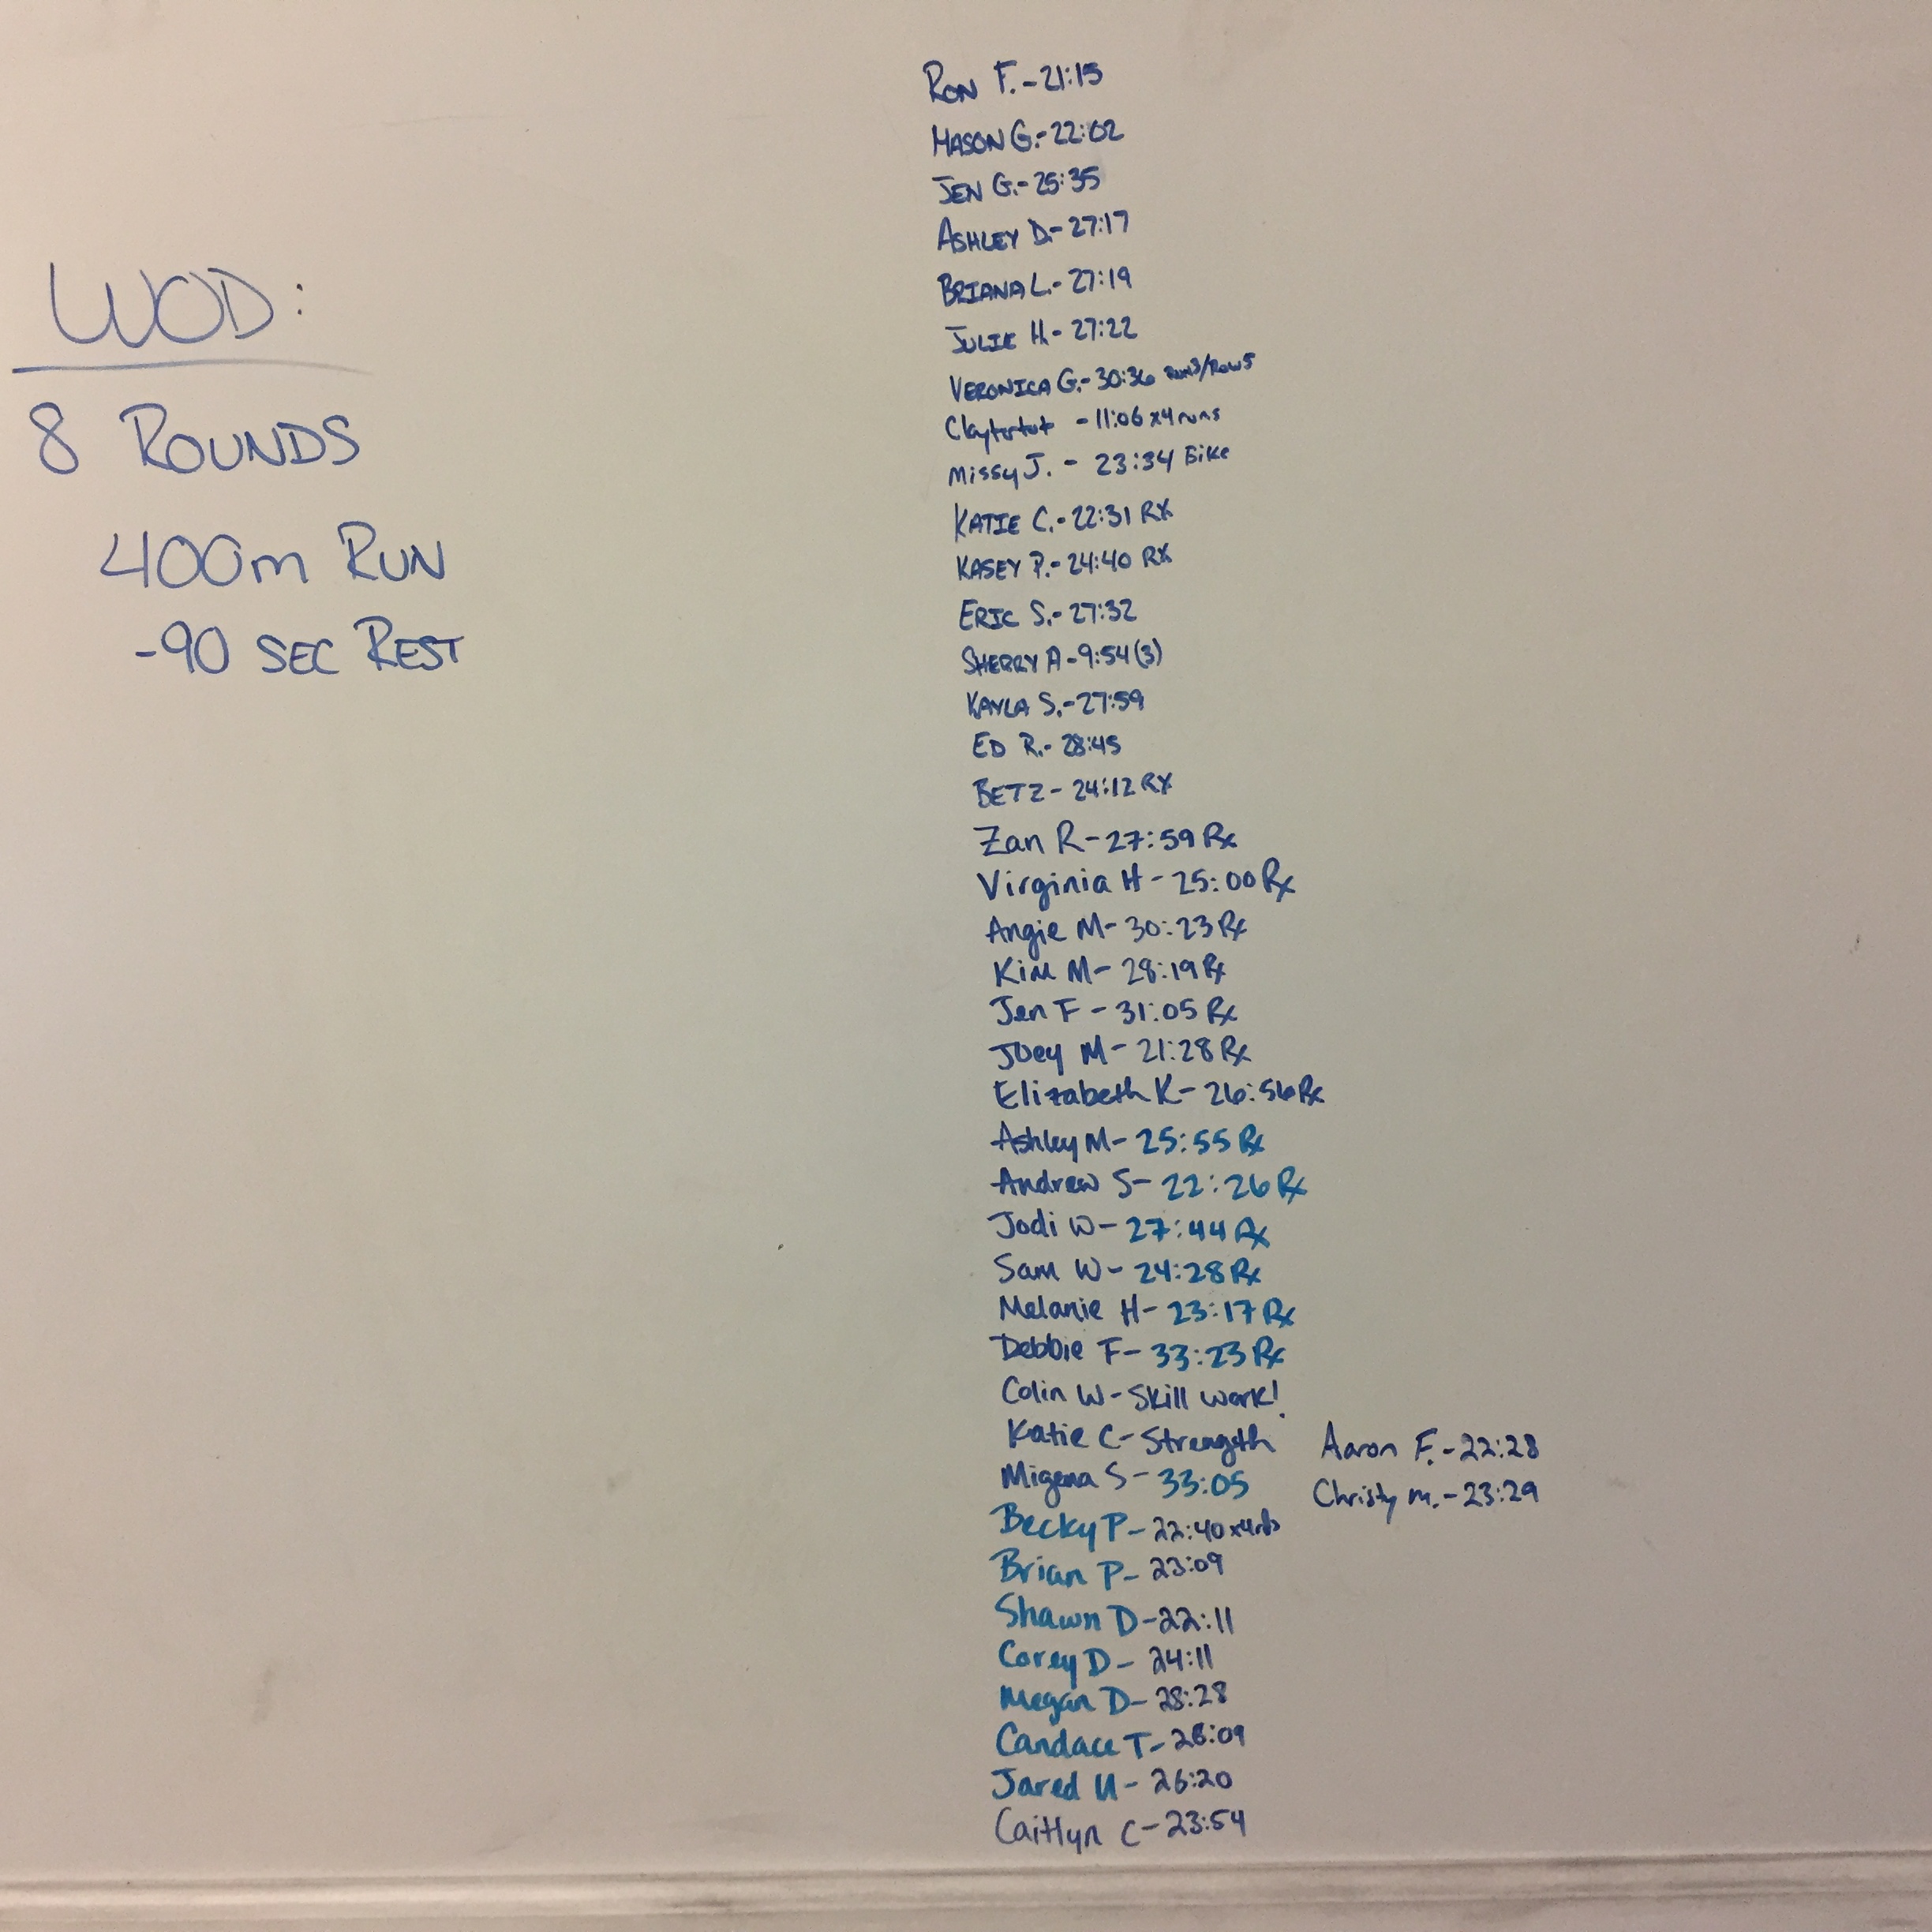 WOD:
8 ROUNDS
400m RUN
-90 SEC REST
RON F. - 21:15
MASON G. - 22:02
JEN G. - 25:35
ASHLEY D. - 27:17
BRIANA L. - 27:19
JULIE H. - 27:22
VERONICA G. - 30:36 RUN3/ROW5
Claytortot - 11:06 x4 runs
Missy J. - 23:34 Bike
KATIE C. - 22:31 RX
KASEY P. - 24:40 RX
ERIC S. - 27:32
SHERRY A - 9:54 (3)
KAYLA S. - 27:59
ED R. - 28:45
BETZ - 24:12 RX
Zan R - 27:59 Rx
Virginia H - 25:00 Rx
Angie M - 30:23 Rx
Kim M - 28:19 Rx
Jen F - 31:05 Rx
Joey M - 21:28 Rx
Elizabeth K - 26:56 Rx
Ashley M - 25:55 Rx
Andrew S - 22:26 Rx
Jodi W - 27:44 Rx
Sam W - 24:28 Rx
Melanie H - 23:17 Rx
Debbie F - 33:23 Rx
Colin W - Skill work!
Katie C - Strength
Migena S - 33:05
Becky P - 22:40 x4rds
Brian P - 23:09
Shawn D - 22:11
Corey D - 24:11
Megan D - 28:28
Candace T - 28:09
Jared U - 26:20
Caitlyn C - 23:54
Aaron F. - 22:28
Christy M. - 23:29